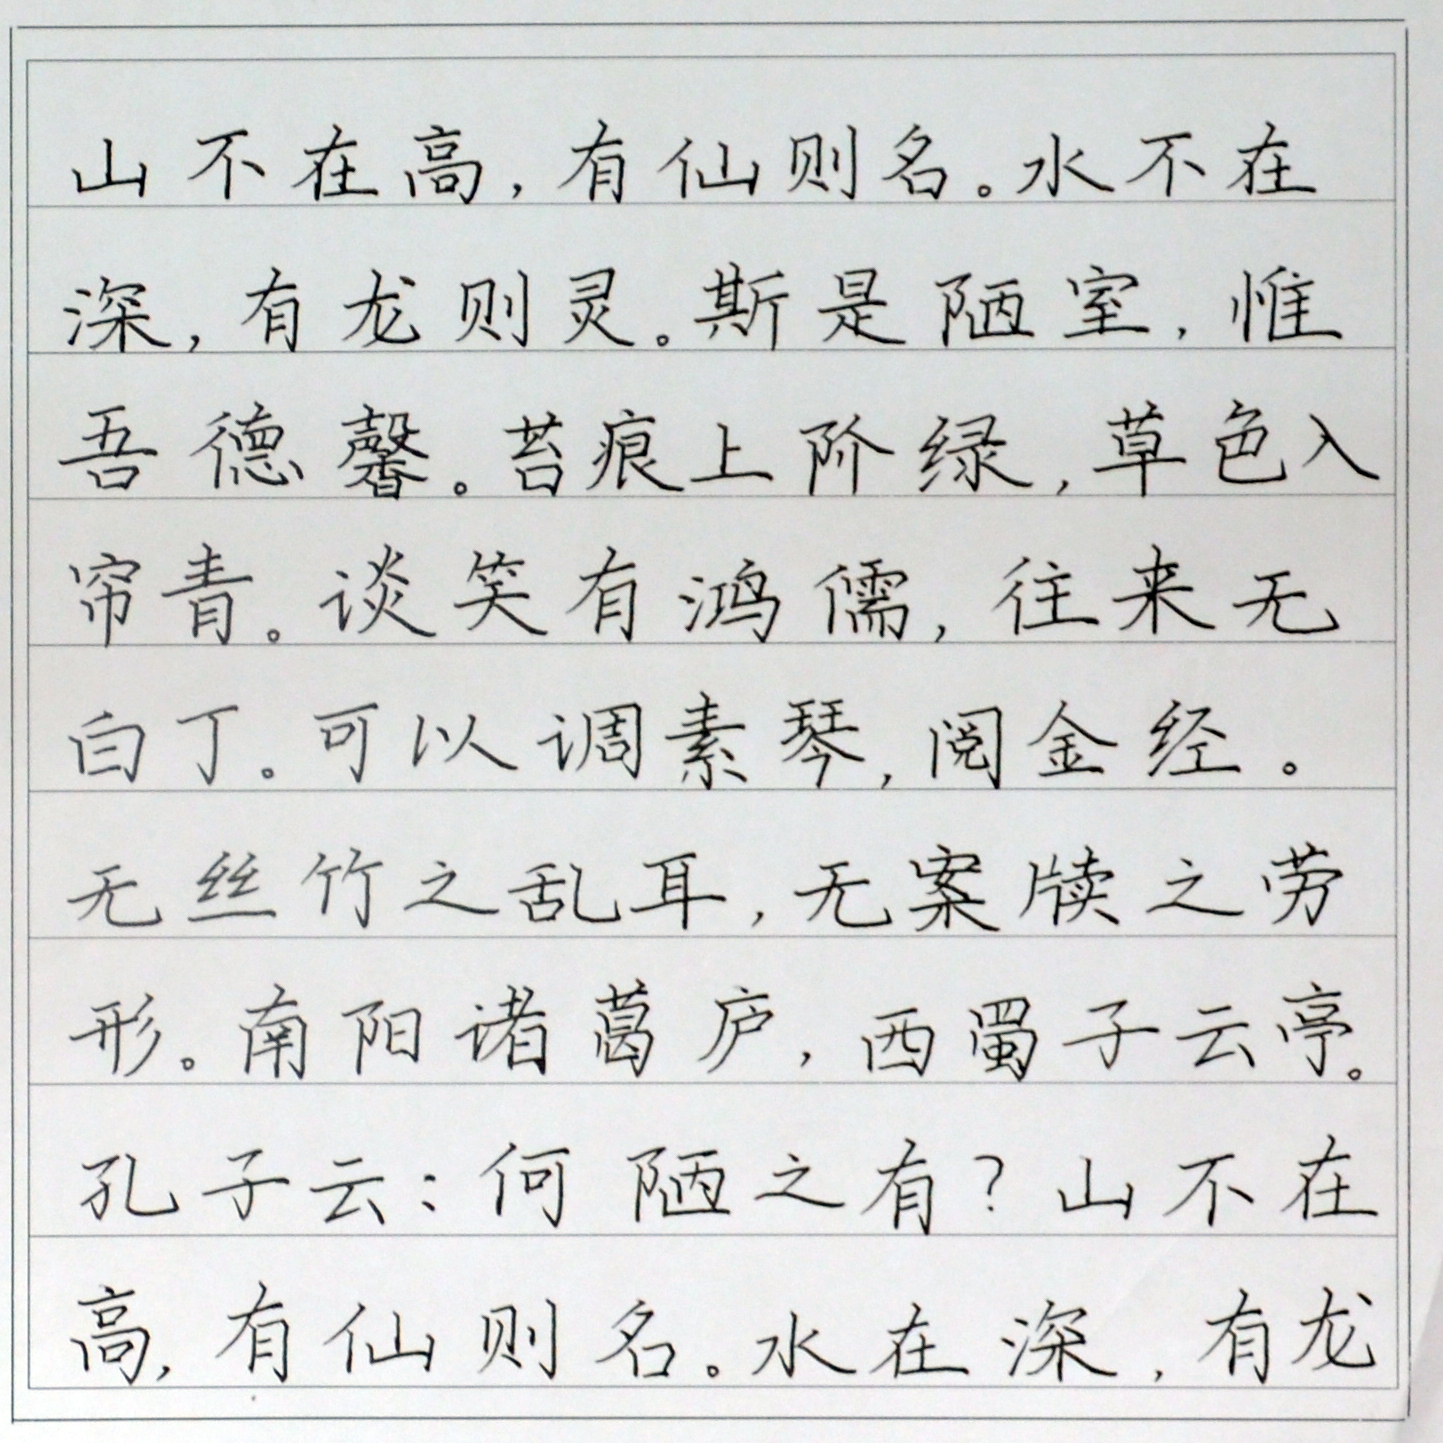 山不在高，有仙则名。水不在
深，有龙则灵。斯是陋室，惟
吾德馨。苔痕上阶绿，草色入
帘青。谈笑有鸿儒，往来无
白丁。可以调素琴，阅金经。
无丝竹之乱耳，无案牍之劳
形。南阳诸葛庐，西蜀子云亭。
孔子云：何陋之有？山不在
高，有仙则名。水在深，有龙